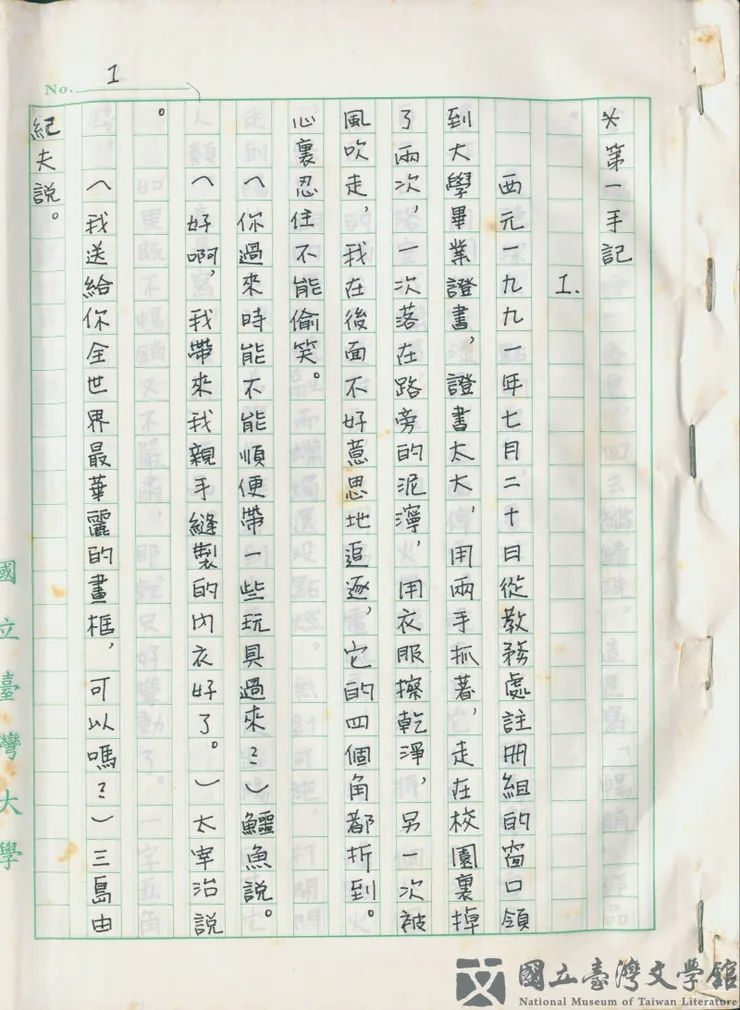 No. 1
＊第一手記
1.
西元一九九一年七月二十日從教務處註冊組的窗口領
到大學畢業證書，證書太大，用兩手抓著，走在校園裏掉
了兩次，一次落在路旁的泥濘，用衣服擦乾淨，另一次被
風吹走，我在後面不好意思地追逐，它的四個角都折到。
心裏忍住不能偷笑。
（你過來時能不能順便帶一些玩具過來？）鱷魚說。
（好啊，我帶來我親手縫製的內衣好了。）太宰治說
。
（我送給你全世界最華麗的畫框，可以嗎？）三島由
紀夫說。
國立臺灣大學
國立臺灣文學館
National Museum of Taiwan Literature